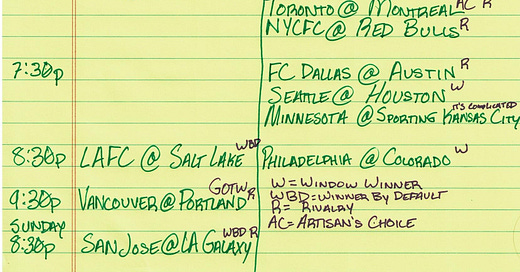 TORONTO @ MONTREAL AC R
NYCFC @ RED BULLS R
7:30p FC DALLAS @ AUSTIN R
SEATTLE @ HOUSTON W
MINNESOTA @ SPORTING KANSAS CITY IT'S COMPLICATED
8:30p LAFC @ SALT LAKE WBD PHILADELPHIA @ COLORADO W
9:30p VANCOUVER @ PORTLAND GOTW R
W = WINDOW WINNER
WBD = WINNER BY DEFAULT
R = RIVALRY
AC = ARTISAN'S CHOICE
SUNDAY
8:30p SAN JOSE @ LA GALAXY WBD R